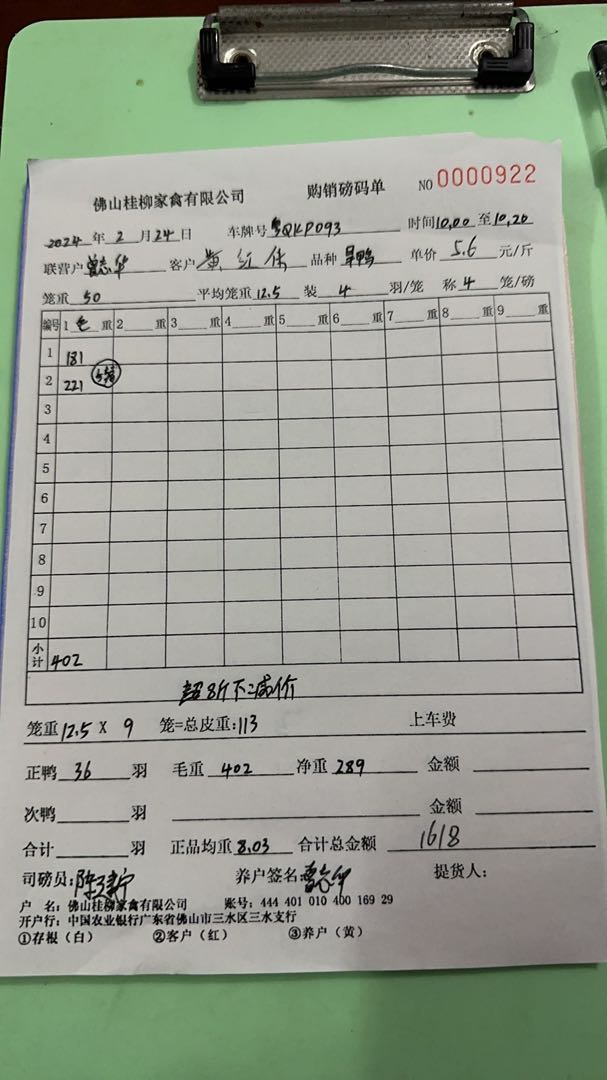 佛山桂柳家禽有限公司 购销磅码单 NO 0000922
2024 年 2 月 24 日 车牌号 粤QKP093 时间 10,00 至 10,20
联营户 曾志华 客户 黄红伟 品种 旱鸭 单价 5.6 元/斤
笼重 50 平均笼重 12.5 装 4 羽/笼 称 4 笼/磅
编号 1 重 2 重 3 重 4 重 5 重 6 重 7 重 8 重 9 重
1 181
2 221
3
4
5
6
7
8
9
10
小计 402
超8斤下 减价
笼重 12.5 X 9 笼=总皮重:113 上车费
正鸭 36 羽 毛重 402 净重 289 金额
次鸭 羽 金额
合计 羽 正品均重 8.03 合计总金额 1618
司磅员: 养户签名: 曾志华 提货人:
户 名: 佛山桂柳家禽有限公司 账号: 444 401 010 400 169 29
开户行: 中国农业银行广东省佛山市三水区三水支行
①存根(白) ②客户(红) ③养户(黄)